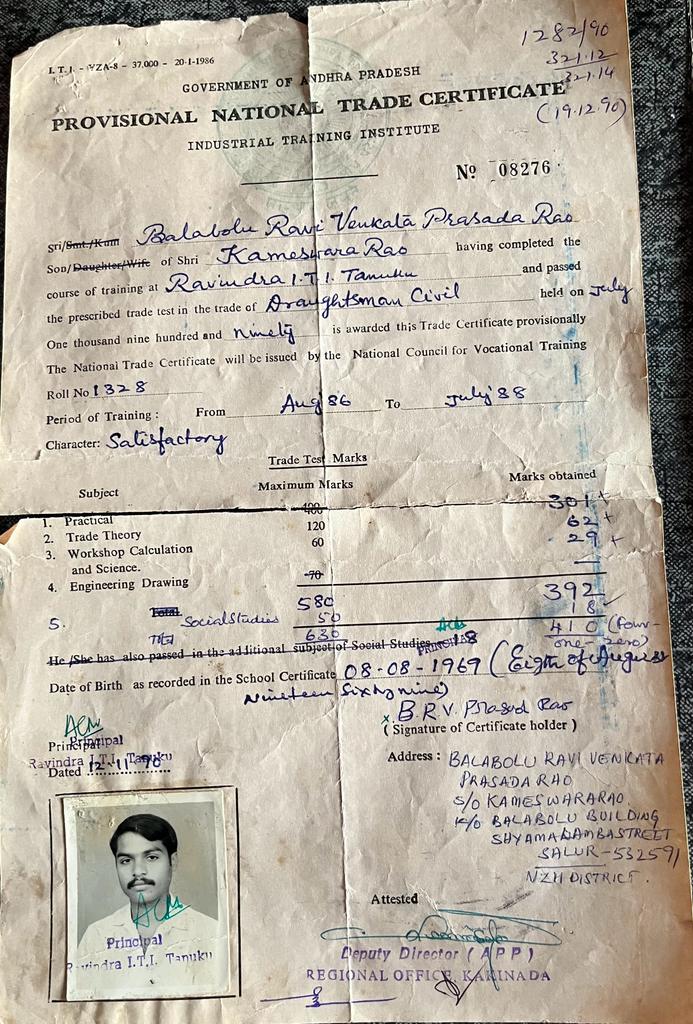 1282/90
321.12
321.14
(19.12.90)
I.T.I. - VZA-8 - 37,000 - 20-1-1986
GOVERNMENT OF ANDHRA PRADESH
PROVISIONAL NATIONAL TRADE CERTIFICATE
INDUSTRIAL TRAINING INSTITUTE
No 08276
Sri/Smt./Kum Balabolu Ravi Venkata Prasada Rao
Son/Daughter/Wife of Shri Kameswara Rao having completed the
course of training at Ravindra I.T.I. Tanuku and passed
the prescribed trade test in the trade of Draughtsman Civil held on July
One thousand nine hundred and ninety is awarded this Trade Certificate provisionally
The National Trade Certificate will be issued by the National Council for Vocational Training
Roll No 1328
Period of Training : From Aug 86 To July'88
Character: Satisfactory
Trade Test Marks
Subject Maximum Marks Marks obtained
1. Practical 400 301 +
2. Trade Theory 120 62 +
3. Workshop Calculation 60 29 +
and Science.
4. Engineering Drawing 70 —
Total 580 392
5. Social Studies 50 18
Total 630 410 (Four-
one-zero)
He/She has also passed in the additional subject of Social Studies 18
Date of Birth as recorded in the School Certificate 08-08-1969 (Eigth of August
Nineteen Sixty nine)
x B.R.V. Prasad Rao
(Signature of Certificate holder)
Principal
Principal
Ravindra I.T.I. Tanuku
Dated 12-11-90
Address : BALABOLU RAVI VENKATA
PRASADA RAO
S/O KAMESWARARAO
BALABOLU BUILDING
SHYAMALAMBA STREET
SALUR-532591
VZM DISTRICT.
Attested
Deputy Director (APP)
REGIONAL OFFICE, KAKINADA
Principal
Ravindra I.T.I. Tanuku